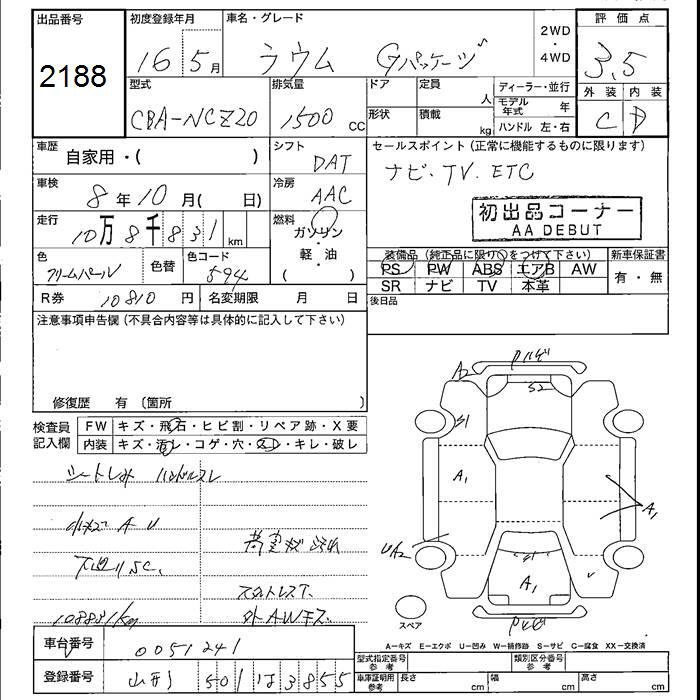 出品番号
2188
初度登録年月
16 5月
車名・グレード
ラウム Gパッケージ
2WD
・
4WD
評価点
3.5
外装 内装
C D
型式
CBA-NCZ20
排気量
1500 CC
ドア
形状
定員
人
積載
kg
ディーラー・並行
モデル年式 年
ハンドル 左・右
車歴
自家用・( )
シフト
DAT
車検
8年10月( 日)
冷房
AAC
走行
10万8千831 km
燃料
ガソリン
・
軽・油
( )
色
クリームパール
色替
色コード
594
R券
10810円
名変期限 月 日
セールスポイント (正常に機能するものに限ります)
ナビ・TV. ETC
初出品コーナー
AA DEBUT
装備品 (純正品に限り○をつけて下さい)
PS PW ABS エアB AW
SR ナビ TV 本革
新車保証書
有・無
後日品
注意事項申告欄 (不具合内容等は具体的に記入して下さい)
修復歴 有 (箇所 )
検査員
記入欄
FW キズ・飛石・ヒビ割・リペア跡・X要
内装 キズ・汚レ・コゲ・穴・スレ・キレ・破レ
シートしみ ハンドルスレ
小キズ A U
下廻りSC.
108831km
スタットレスT.
外AWキズ
A2
S2
S1
A1
A1
U A2
S1
A1
スペア
A-キズ E-エクボ U-凹み W-補修跡 S-サビ C-腐食 XX-交換済
車台番号
0051241
登録番号
山形 501 は 3855
型式指定番号
参考
類別区分番号
参考
車庫証明用
参考
長さ cm
幅 cm
高さ cm